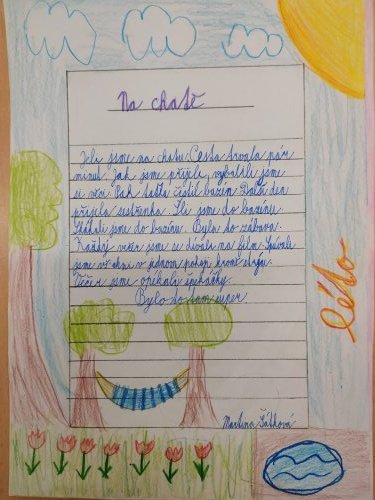 Na chatě
Jeli jsme na chatu. Cesta trvala pár
minut. Jak jsme přijeli, vybalili jsme
si věci. Pak taťka čistil bazén. Další den
přijela sestřenka. Šli jsme do bazénu.
Skákali jsme do bazénu. Byla to zábava.
Každý večer jsme se dívali na film. Spávali
jsme všichni v jednom pokoji kromě strýce.
Večer jsme opékali špekáčky.
Bylo to tam super.
léto
Martina Šátková